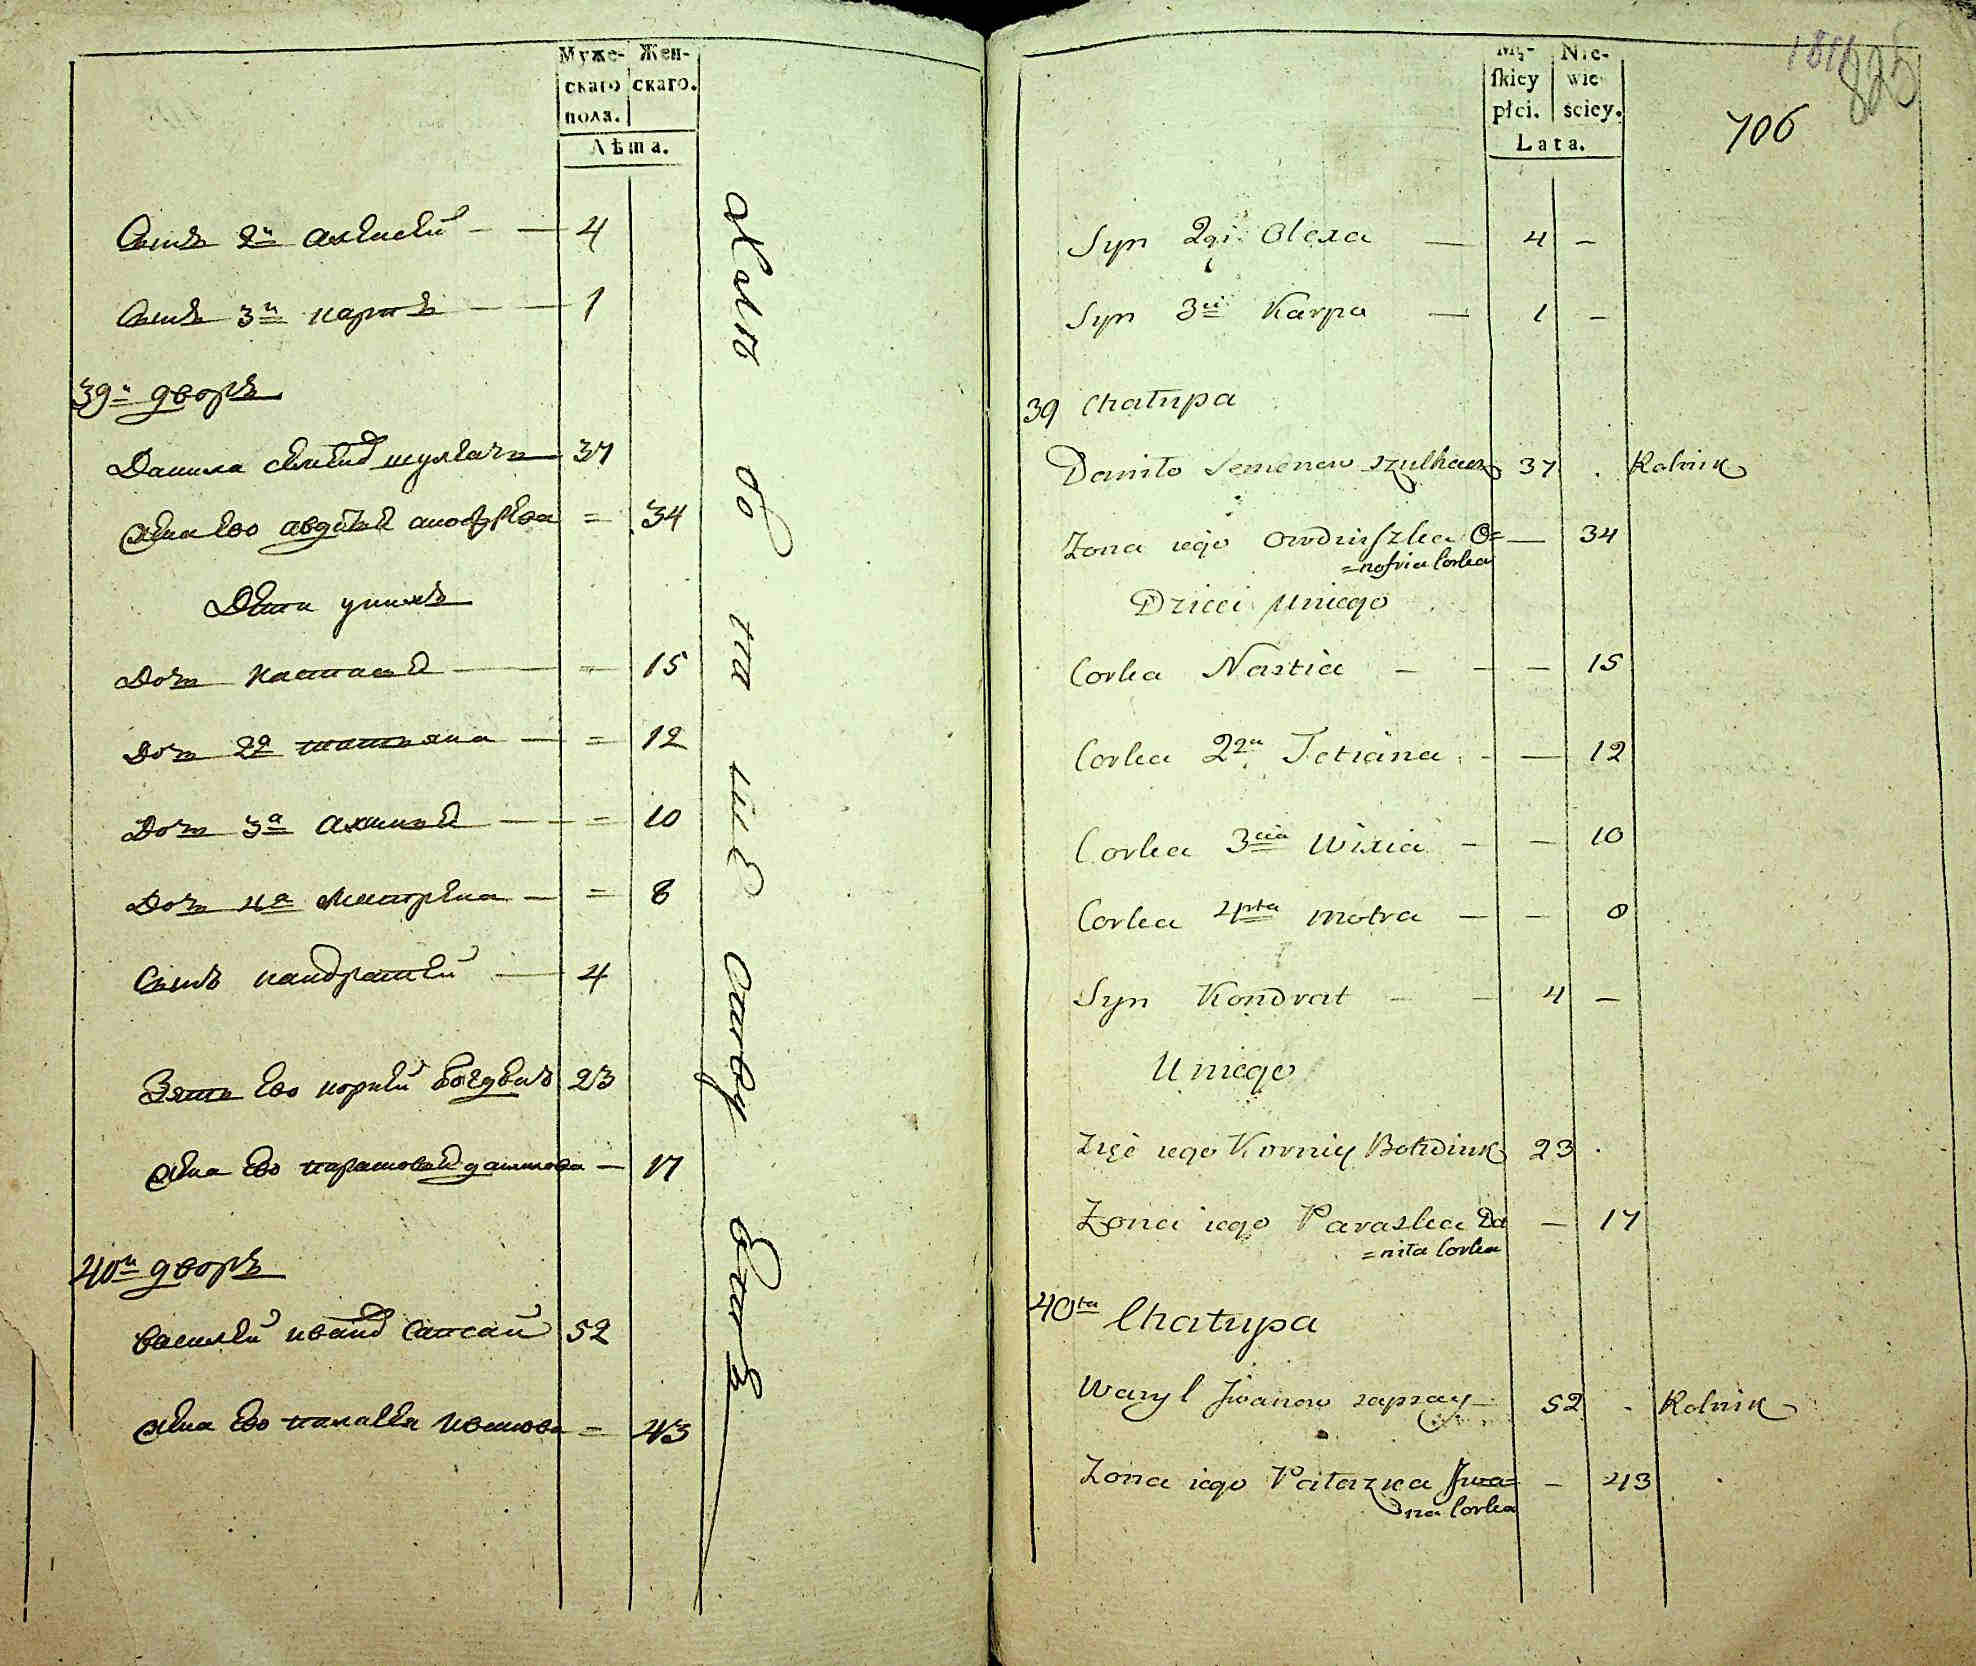 Муже- Жен-
скаго скаго.
пола.
Лѣта.
Сынъ 2й Алексей 4
Сынъ 3й Карпъ 1
39й дворъ
Данила Семенов Шулкачъ 37
Жена ево Авдотья Аноф 34
Дети у нихъ
Дочь Настасья 15
Дочь 2я Татьяна 12
Дочь 3я Аксинья 10
Дочь 4я Матрена 8
Сынъ Кандратей 4
Зять ево Корней 23
Жена ево Парасковья Данилова 17
40й дворъ
Василей Иванов Сапсай 52
Жена ево Палагея Иванова 43
Mę- Nie-
skiey wie-
płci. ściey.
Lata.
706
825
Syn 2gi Olexa 4 —
Syn 3ci Karpa 1 —
39 Chałupa
Daniło Semenow Szulkacz 37 . Rolnik
Zona iego Owdiuszka O= — 34
=nofria Corka
Dzieci Uniego
Corka Nastia — — — 15
Corka 2ga Tetiana — — 12
Corka 3cia Wixia — — 10
Corka 4rta Motra — — 8
Syn Kondrat — — 4 —
Uniego
Zięć iego Korniy 23 .
Zona iego Paraska Da — 17
=niła Corka
40ta Chałupa
Wasyl Iwanow Sapsay 52 . Rolnik
Zona iego Pałaszka Iwa= — 43
na Corka